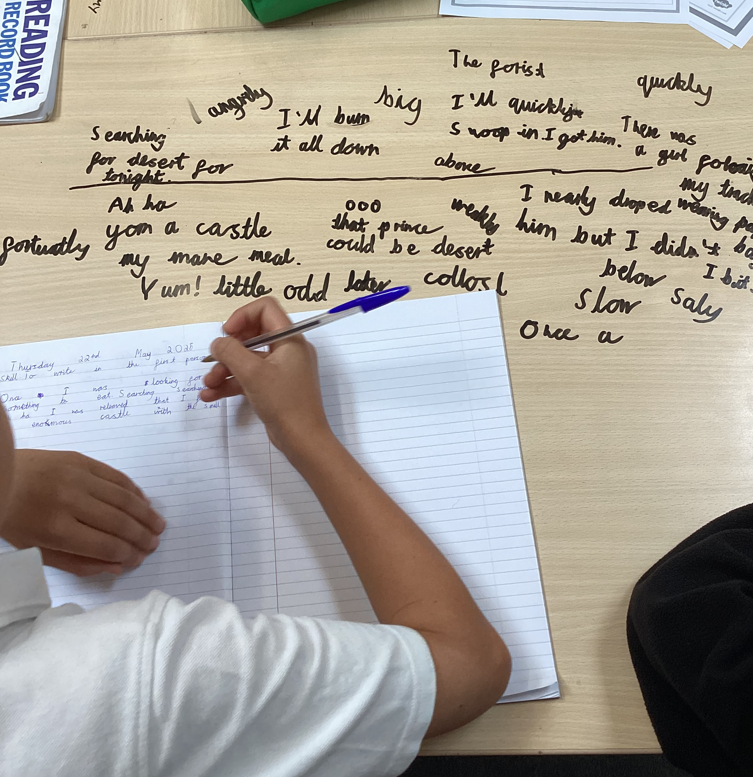 READING
RECORD BOOK
The forist
quickly
angrily
big
I'll burn
it all down
I'll quickly
Swoop in. I got him.
above
There was
a girl
my
Searching
for desert for
tonight.
Ah ha
yom a castle
my mane meal.
fortuatly
Yum! little odd later
ooo
that prince
could be desert
weakly
collosl
I nearly droped wearing
him but I didn't
below
I
Slow
Saly
Once a
Thursday 22nd May 2025
Skill to write in the first
Once I was looking for
something to eat. Searching
ha I was relieved that I
enormous castle with the